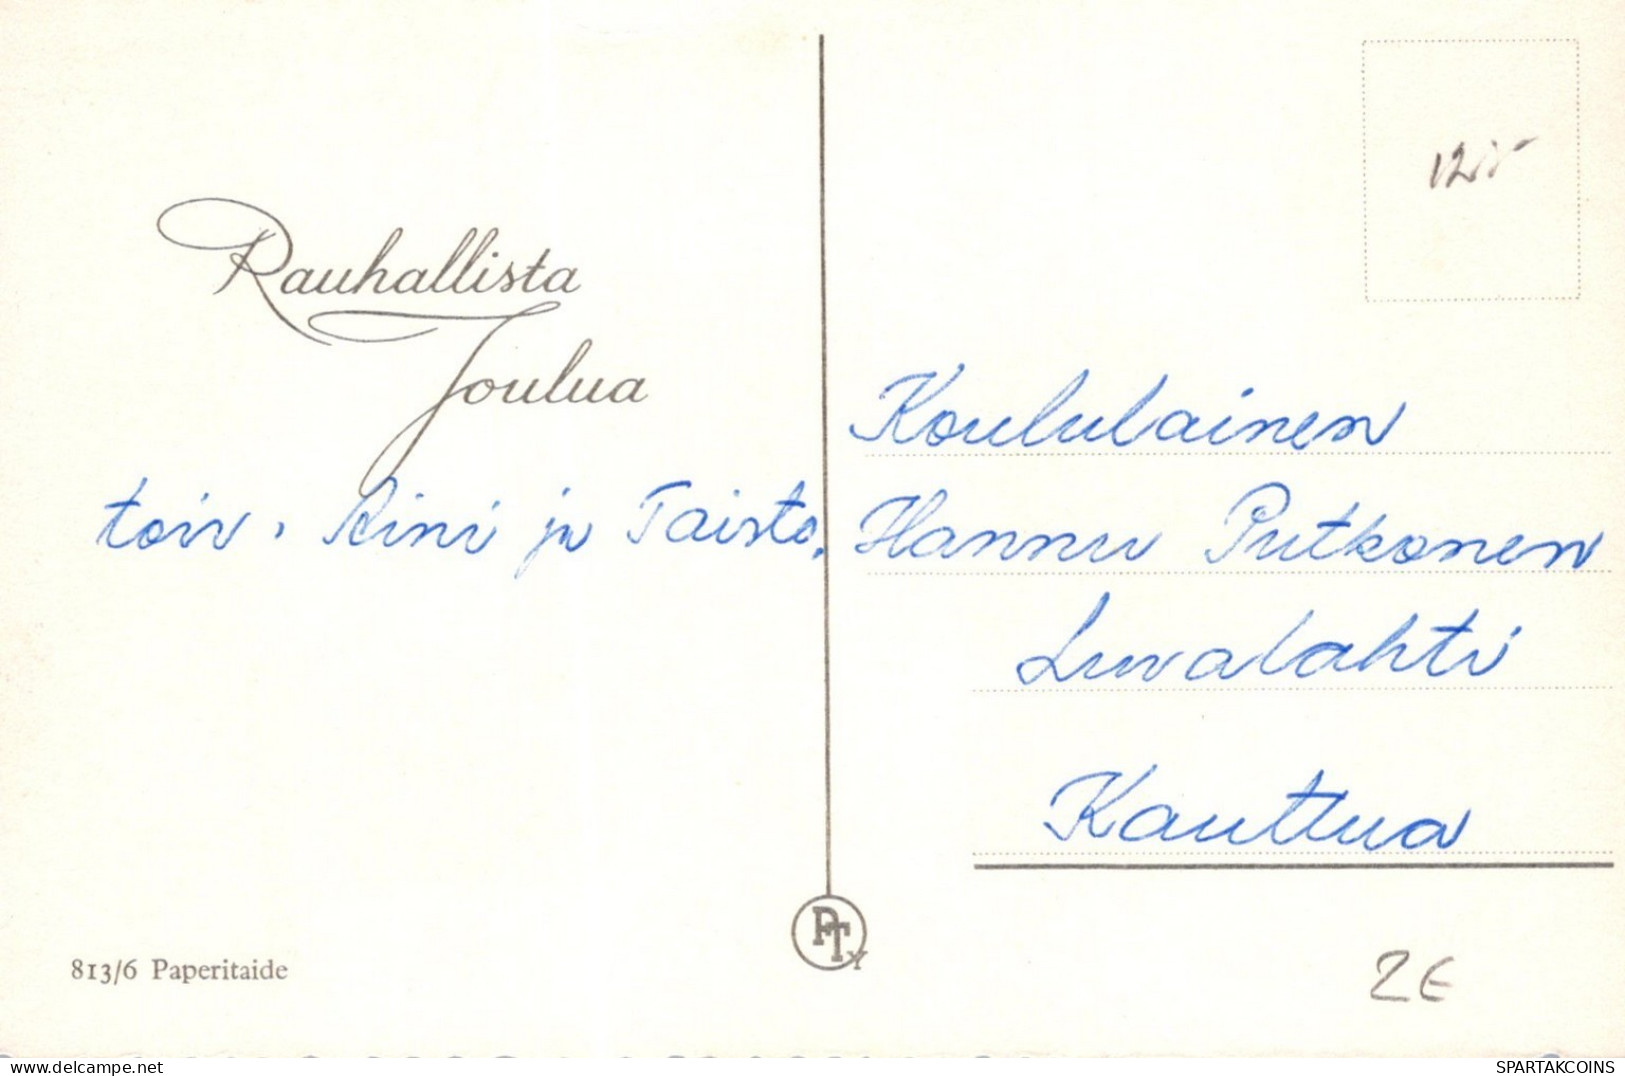 Rauhallista
Joulua
toiv. Aini ja Taisto.
Koululainen
Hannu Putkonen
Luvalahti
Kauttua
PTY
813/6 Paperitaide
2€
delcampe.net
SPARTAKCOINS